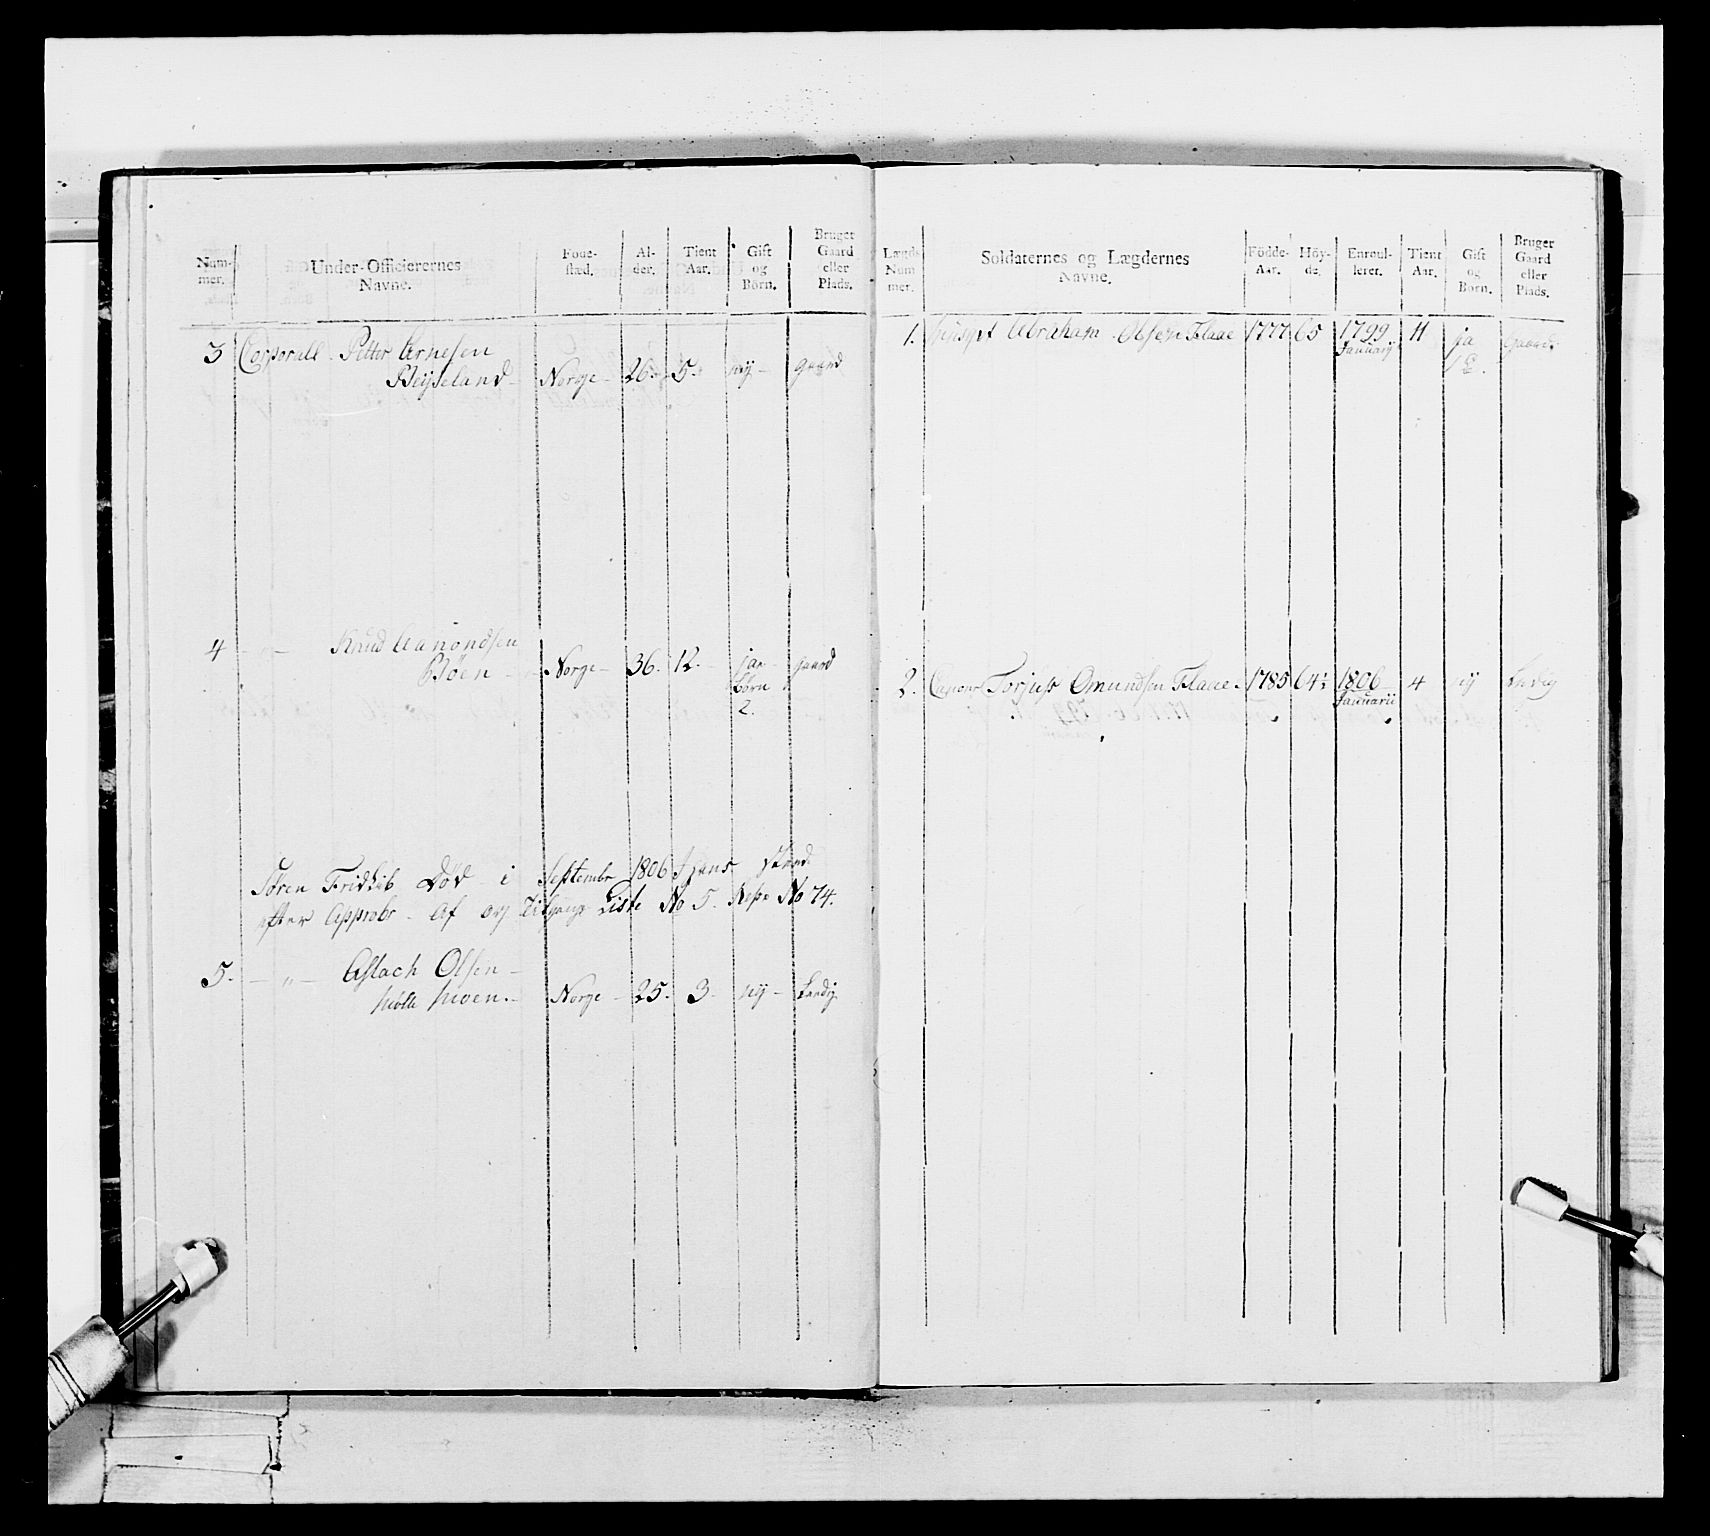 Num-
mer.
Under-Officierernes
Navne.
Føde-
sted.
Al-
der.
Tient
Aar.
Gift
og
Börn.
Bruger
Gaard
eller
Plads.
3 Corporall Petter Arnesen
Beijseland Norge 26. 5. nÿ gaard
4 Knud Aanondsen
Bøen Norge 36. 12. ja gaard
børn
2.
Søren død i Septembr 1806
efter Approbr. Af Liste No 5. No 74.
5. Aslach Olsen
moen. Norge 25. 3. nÿ Ledig
Lægds
Num
mer.
Soldaternes og Lægdernes
Navne.
Födde-
Aar.
Höy-
de.
Enroul-
leret.
Tient
Aar.
Gift
og
Börn.
Bruger
Gaard
eller
Plads.
1. Abraham Olsen Flaae 1777 65 1799 11 ja Gaard
Januarÿ
2. Torjuss Omundsen Flaae 1785 64½ 1806 4 nÿ Ledig
Januarii